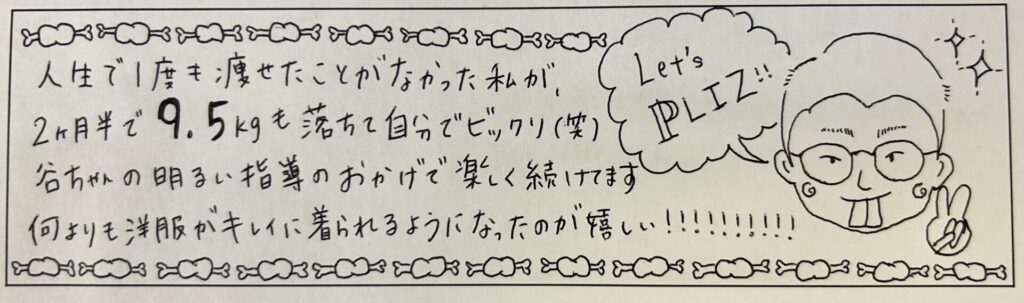 人生で1度も痩せたことがなかった私が、
2ヶ月半で9.5kgも落ちて自分でビックリ(笑)
谷ちゃんの明るい指導のおかげで楽しく続けてます
何よりも洋服がキレイに着られるようになったのが嬉しい!!!!!!!!!!
Let's
PLIZ!!